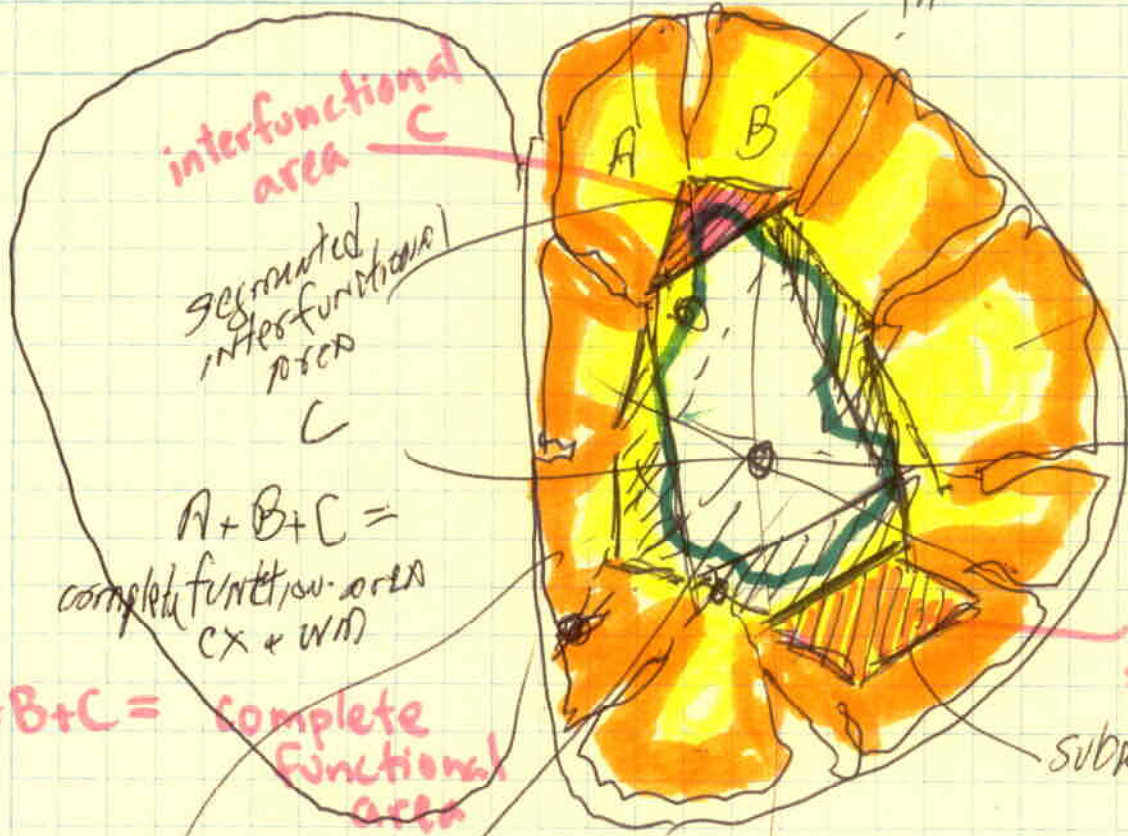 interfunctional
area C
A
B
segmented
interfunctional
area
C
A + B + C =
complete function area
CX + WM
B+C = complete
functional
area